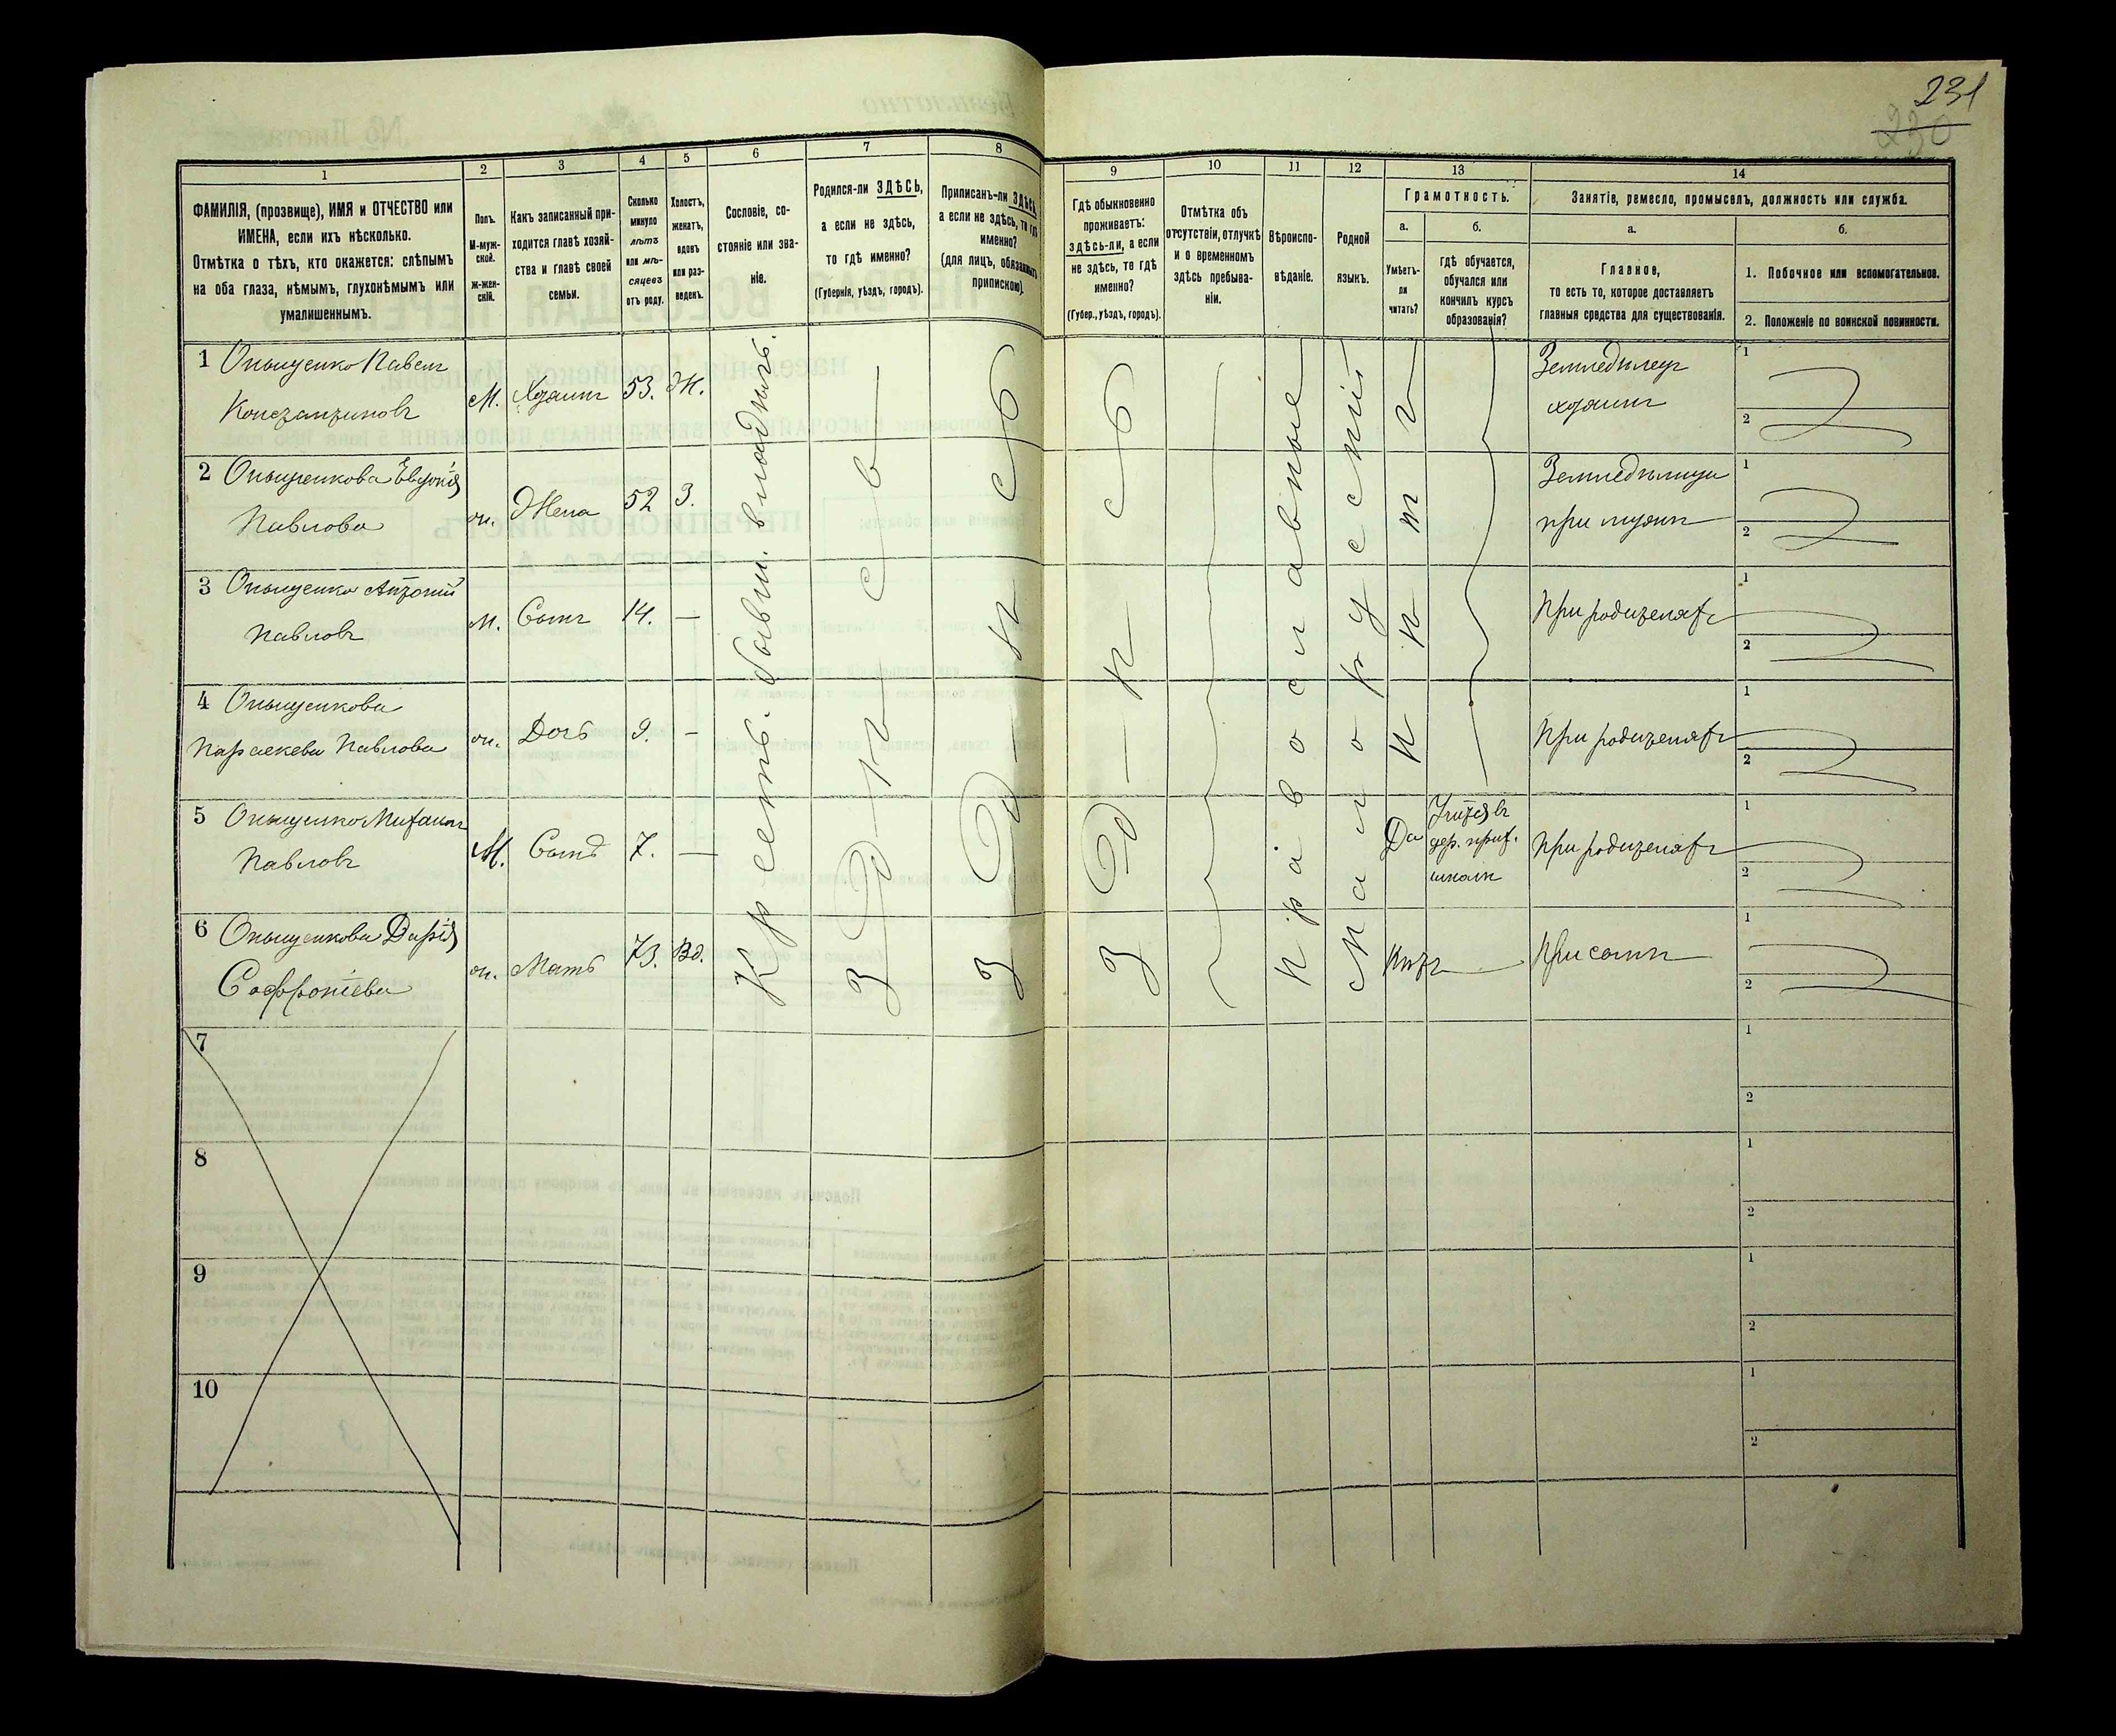 231
230
1
ФАМИЛІЯ, (прозвище), ИМЯ и ОТЧЕСТВО или
ИМЕНА, если ихъ нѣсколько.
Отмѣтка о тѣхъ, кто окажется: слѣпымъ
на оба глаза, нѣмымъ, глухонѣмымъ или
умалишеннымъ.
2
Полъ.
М-муж-
ской.
Ж-жен-
скій.
3
Какъ записанный при-
ходится главѣ хозяй-
ства и главѣ своей
семьи.
4
Сколько
минуло
лѣтъ
или мѣ-
сяцевъ
отъ роду.
5
Холостъ,
женатъ,
вдовъ
или раз-
веденъ.
6
Сословіе, со-
стояніе или зва-
ніе.
7
Родился-ли ЗДѢСЬ,
а если не здѣсь,
то гдѣ именно?
(Губернія, уѣздъ, городъ).
8
Приписанъ-ли ЗДѢСЬ,
а если не здѣсь, то гдѣ
именно?
(для лицъ, обязанныхъ
припискою).
9
Гдѣ обыкновенно
проживаетъ:
здѣсь-ли, а если
не здѣсь, то гдѣ
именно?
(Губер., уѣздъ, городъ).
10
Отмѣтка объ
отсутствіи, отлучкѣ
и о временномъ
здѣсь пребыва-
ніи.
11
Вѣроиспо-
вѣданіе.
12
Родной
языкъ.
13
Грамотность.
а.
Умѣетъ-
ли
читать?
б.
гдѣ обучается,
обучался или
кончилъ курсъ
образованія?
14
Занятіе, ремесло, промыселъ, должность или служба.
а.
Главное,
то есть то, которое доставляетъ
главныя средства для существованія.
б.
1. Побочное или вспомогательное.
2. Положеніе по воинской повинности.
1 Онищенко Павелъ
Константиновъ
М. Хозяинъ 53. Ж.
Земледѣлецъ
хозяинъ
1
2
2 Онищенкова Евдокія
Павлова
ж. Жена 52 З.
Земледѣлица
при мужѣ
1
2
3 Онищенко Антоній
Павловъ
М. Сынъ 14. —
При родителяхъ
1
2
4 Онищенкова
Параскева Павлова
ж. Дочь 9. -
При родителяхъ
1
2
5 Онищенко Михаилъ
Павловъ
М. Сынъ 7. —
Да
Учится въ
цер. прих.
школѣ
При родителяхъ
1
2
6 Онищенкова Дарія
Софроніева
ж. Мать 73. Вд.
Нѣтъ
При сынѣ
1
2
Крестьян. бывш. владѣль.
Здѣсь
Здѣсь
Здѣсь
Православные
Малорусскій
Нѣтъ
7
1
2
8
1
2
9
1
2
10
1
2